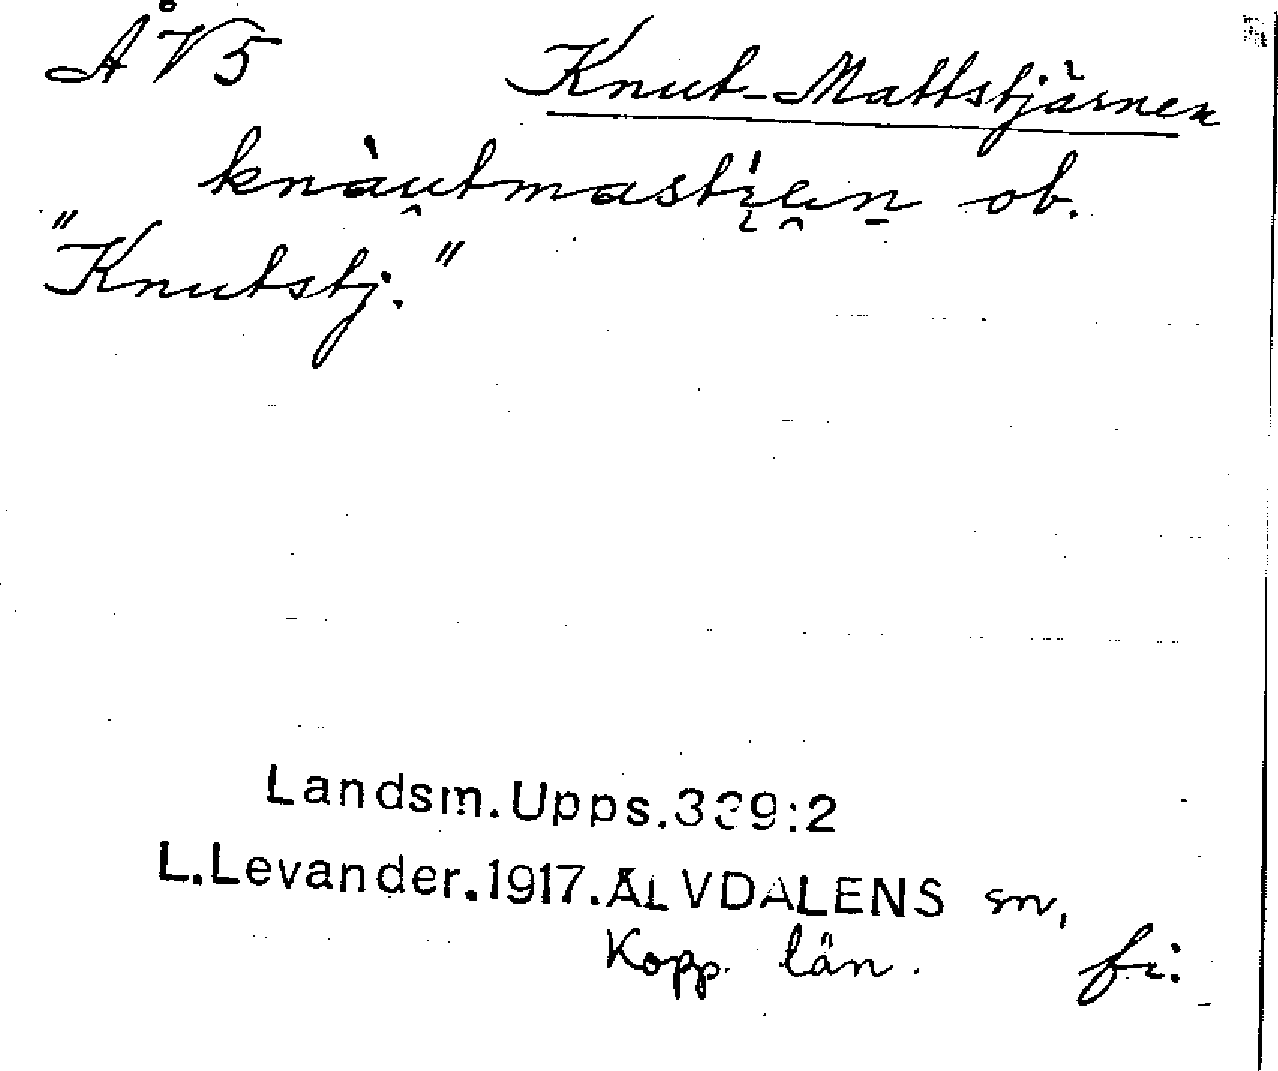 ÅV5 Knut-Mattstjärnen
knàu̯tmasti̯e̯n̠ ob.
"Knutstj."
Landsm.Upps.339:2
L.Levander.1917.ÄLVDALENS sn,
Kopp. län. fi: